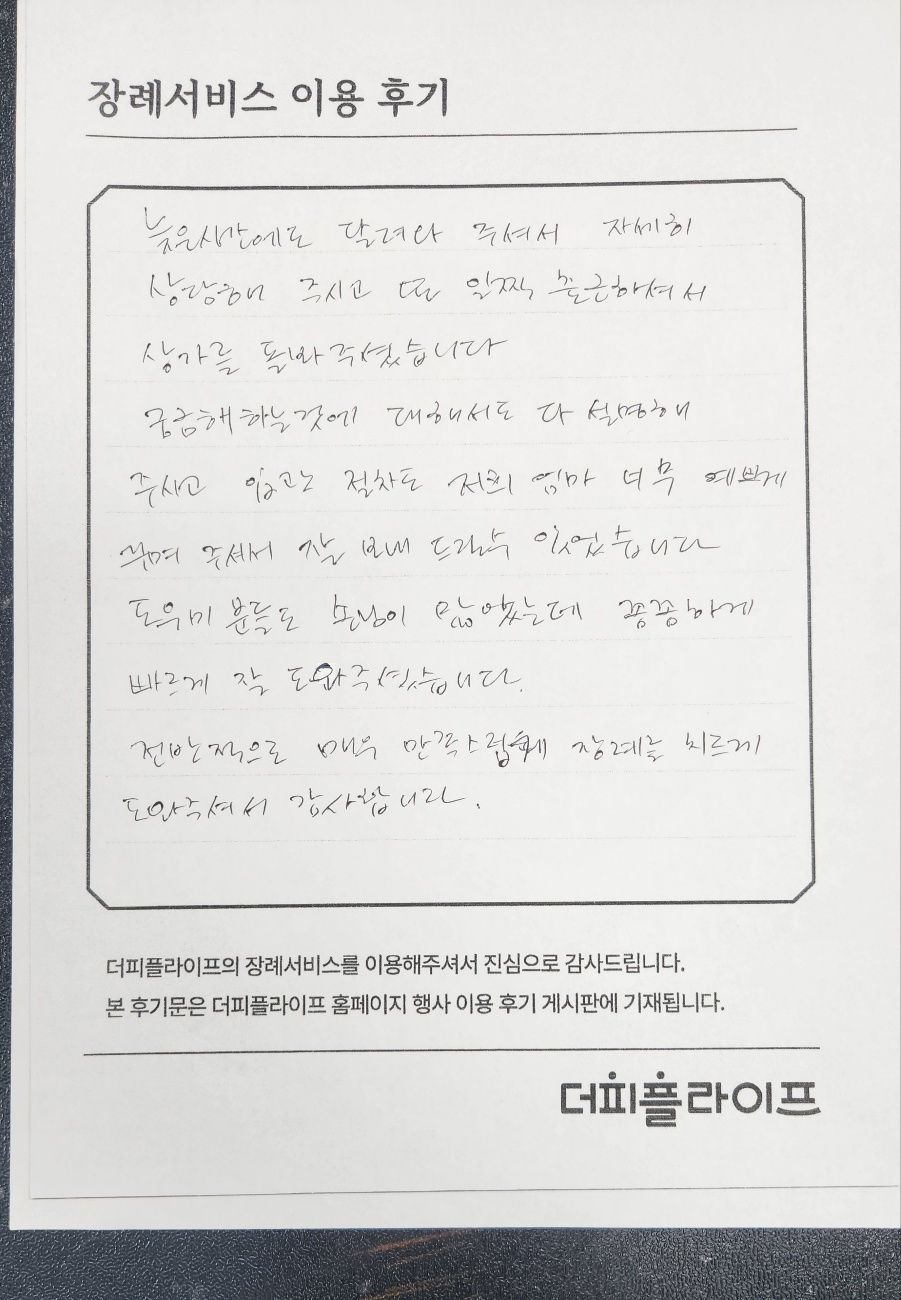 장례서비스 이용 후기
늦은시간에도 달려와 주셔서 자세히
상담해 주시고 또 일찍 출근하셔서
상가를 돌봐주셨습니다
궁금해하는것에 대해서도 다 설명해
주시고 입관 절차도 저희 엄마 너무 예쁘게
꾸며 주셔서 잘 보내 드릴수 있었습니다
도우미 분들도 손님이 많았는데 종종하게
빠르게 잘 도와주셨습니다.
전반적으로 매우 만족스럽게 장례를 치르게
도와주셔서 감사합니다.
더피플라이프의 장례서비스를 이용해주셔서 진심으로 감사드립니다.
본 후기문은 더피플라이프 홈페이지 행사 이용 후기 게시판에 기재됩니다.
더피플라이프